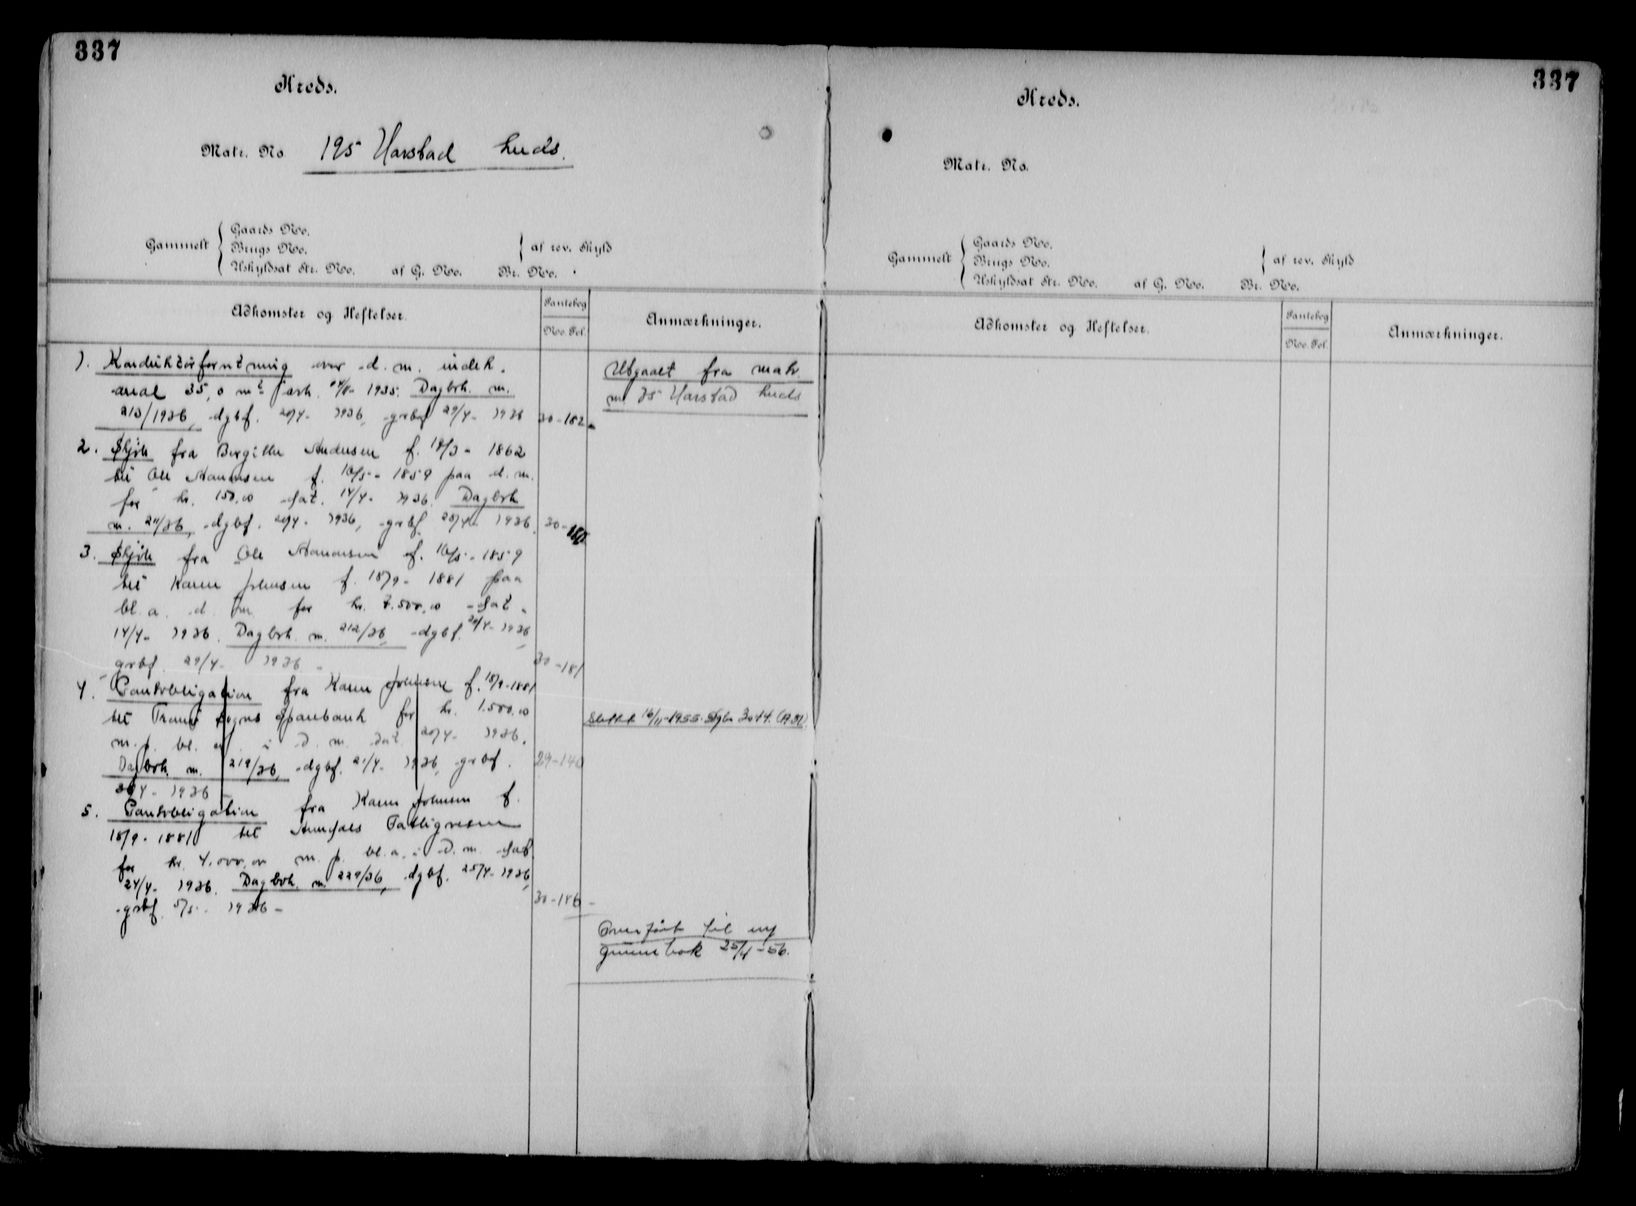 337
Kreds.
Matr. No 195 Harstad lnds.
Gammelt
Gaards No.
Brugs No.
af rev. Skyld
Uskyldsat Str. No. af G. No. Br. No.
Adkomster og Heftelser.
Pantebog
No. Fol.
Anmærkninger.
1. Konduktørforretning over d. m. indeh.
areal 35,0 m² 1935. Dagbok. nr.
213/1936, dgbf. 20/4- 1936, grbf 29/4- 1936 30-182
2. Skjøte fra Bergitte Andersen f. 1862
til Ole f. 16/5- 1859 paa d. m.
for kr. 150,00 dat. 14/4- 1936. Dagbok
nr. dgbf. 20/4- 1936, grbf. 1936. 30-
3. Skjøte fra Ole f. 16/5- 1859
til Karen Johnsen f. 18/9- 1881 paa
bl. a. d. m. for kr. dat.
14/4- 1936. Dagbok. nr. 212/36, dgbf. 20/4- 1936
grbf. 29/4- 1936 - 30-181
4. Pantobligation fra Karen Johnsen f. 18/9-1881
til Sogns Sparebank for kr. 1.500,00
m. p. bl. a. i d. m. dat. 20/4- 1936.
Dagbok nr. 219/36, dgbf. 21/4- 1936, grbf. 29-140
1936
5. Pantobligation fra Karen Johnsen f.
18/9- 1881 til Fattigvesen
for kr. 4.000,00 m. p. bl. a. i d. m. dat.
24/4- 1936. Dagbok. nr. 229/36, dgbf. 25/4- 1936,
grbf. 5/5- 1936 - 30-186
Utgaaet fra matr.
nr 35 Harstad lnds
Slettet 16/11-1955.
Overført til ny
grunnbok 25/4-56.
337
Kreds.
Matr. No.
Gammelt
Gaards No.
Brugs No.
af rev. Skyld
Uskyldsat Str. No. af G. No. Br. No.
Adkomster og Heftelser.
Pantebog
No. Fol.
Anmærkninger.